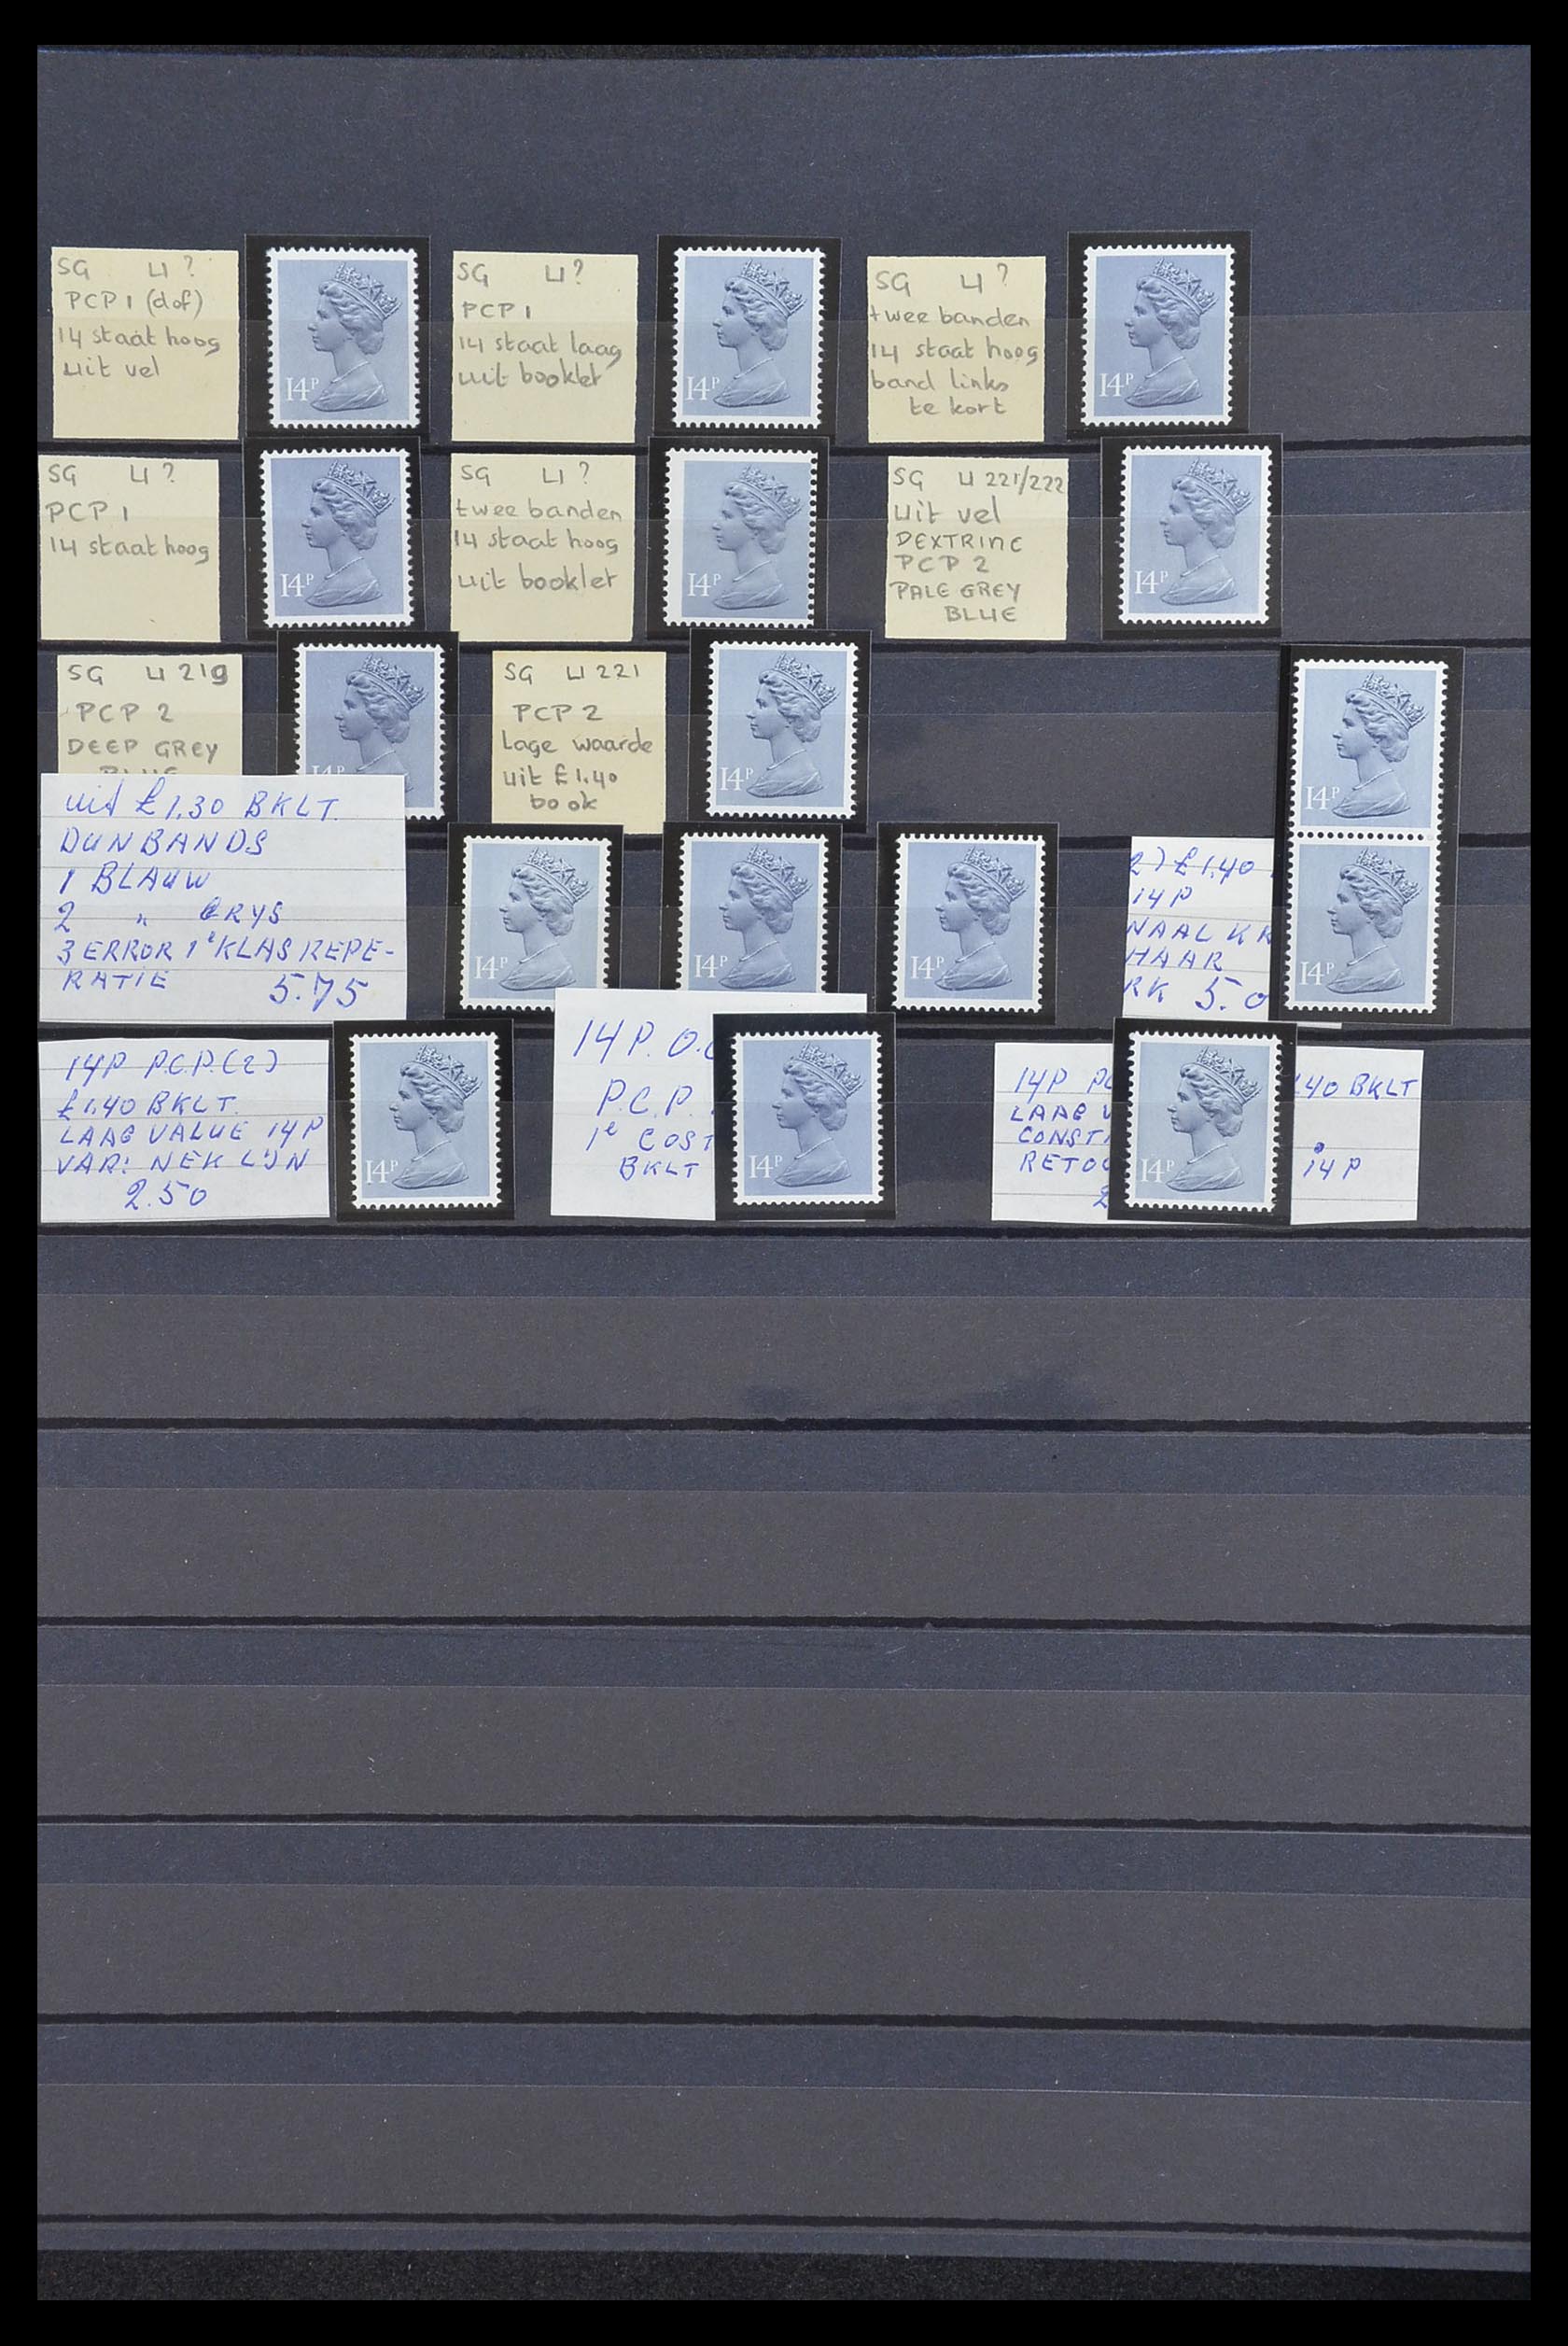 SG U ?
PCP 1 (dof)
14 staat hoog
uit vel
14P
SG U ?
PCP 1
14 staat laag
uit booklet
14P
SG U ?
twee banden
14 staat hoog
band links
te kort
14P
SG U ?
PCP 1
14 staat hoog
14P
SG U ?
twee banden
14 staat hoog
uit booklet
14P
SG U 221/222
uit vel
DEXTRINE
PCP 2
PALE GREY
BLUE
14P
SG U 219
PCP 2
DEEP GREY
BLUE
14P
SG U 221
PCP 2
Lage waarde
uit £1.40
book
14P
14P
14P
uit £1,30 BKLT.
DUN BANDS
1 BLAUW
2 " GRYS
3 ERROR 1e KLAS REPE-
RATIE 5.75
14P
14P
14P
2) £1,40
14P
NAAL KR
HAAR
RK 5.0
14P P.C.P.(2)
£1,40 BKLT.
LAAG VALUE 14P
VAR: NEK LIJN
2.50
14P
14P.
P.C.P.
1e COST
BKLT
14P
14P
LAAG
CONST
RETOC
2
14P
1.40 BKLT
14P